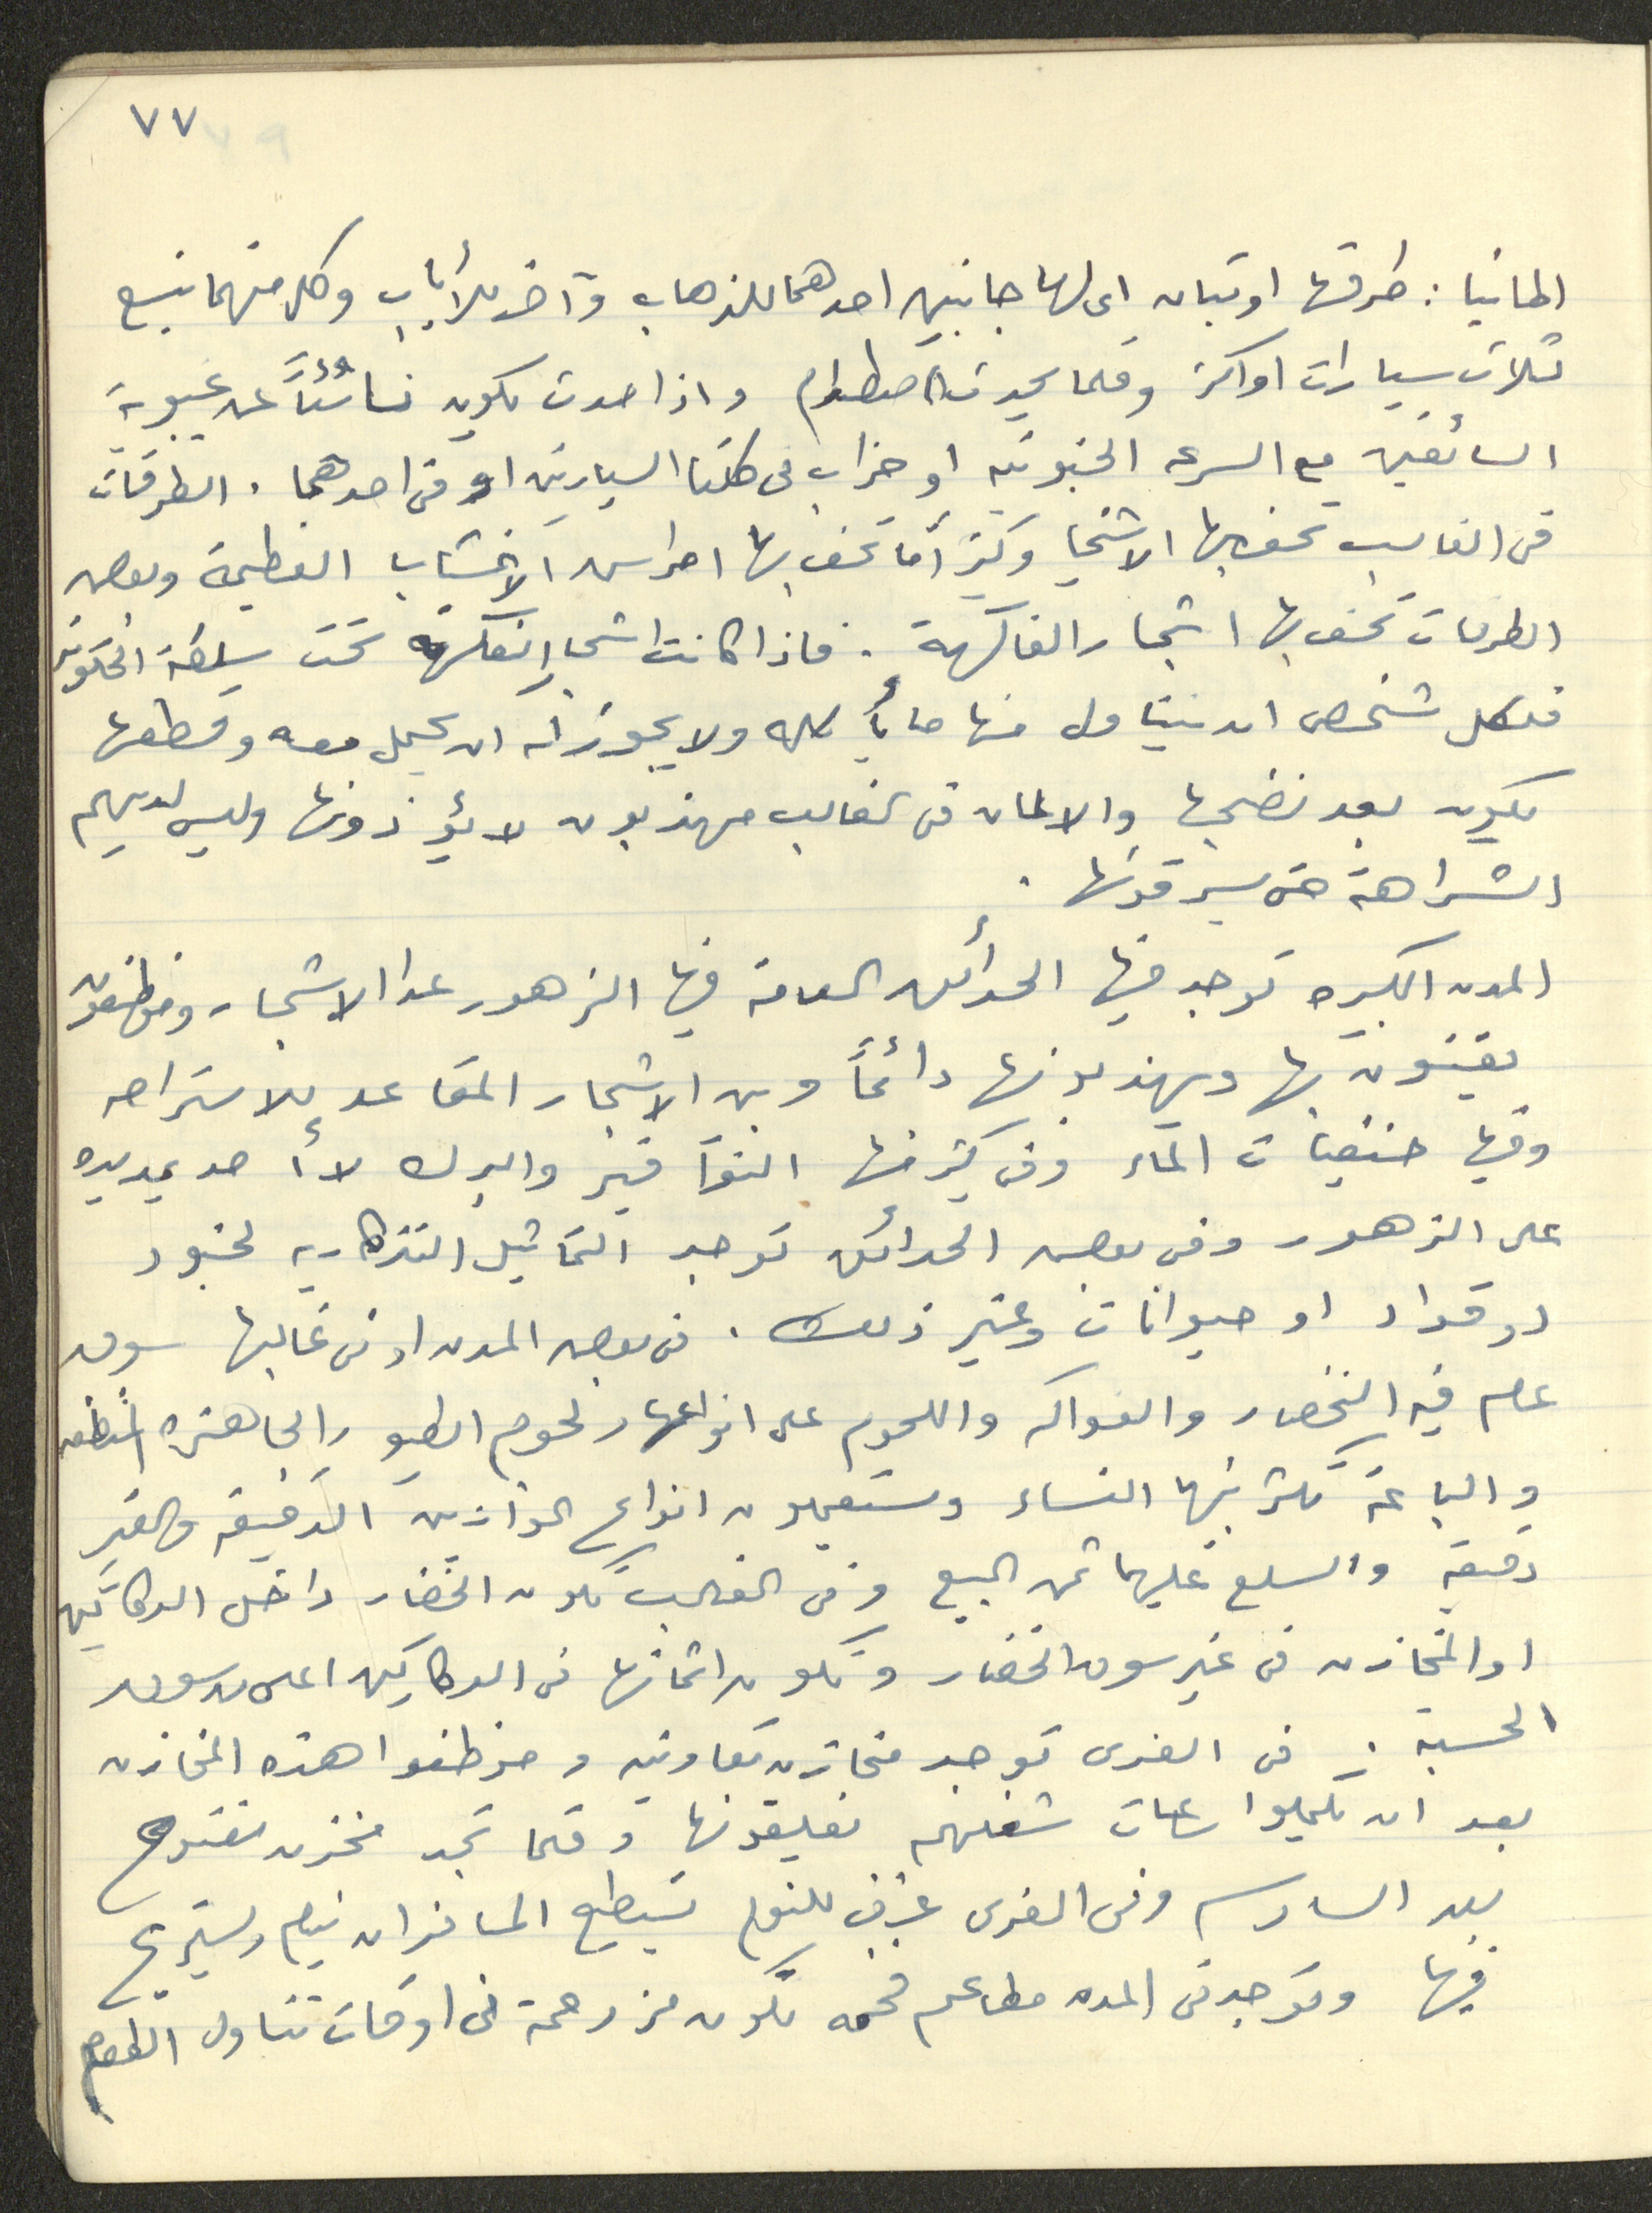 ٧٧
المانيا : طرقها اوتبان اي لها جانبين احدهما للذهاب وآخر للأياب وكل منهما تتسع
لثلاث سيارات او اكثر وقلما يحدث اصطدام واذا حدث يكون ناشئاً عن غيبوبة
السائقين مع السرعه الجنونيه او خراب في كلتا السيارتين او في احدهما . الطرقات
في الغالب تحف بها الاشجار وكثيراً ما تحف بها احراس الاخشاب العظيمة وبعض
الطرقات تحف بها اشجار الفاكهة . فاذا كانت اشجار الفكهه تحت سلطة الحكومه
فلكل شخص ان يتناول منها ما يأكله ولا يجوز له ان يحمل معه وقطعها
يكون بعد نضجها والالمان في الغالب مهذبون لا يؤذونها وليس لديهم
الشراهة حتى يسرقونها .
المدن الكبيره توجد فيها الحدائق العامة فيها الزهور عدا الاشجار وموظفون
يعتنون بها ويهذبونها دائماً وبين الاشجار المقاعد للاستراحه
وفيها حنفيات الماء وفي كثير منها النوافير والبرك لا أحد يمد يده
على الزهور وفي بعض الحدائق توجد التماثيل التذكاريه لجنود
او قواد او حيوانات وغير ذلك . في بعض المدن او في غالبها سوق
عام فيه الخضار والفواكه واللحوم على انواعها ولحوم الطيور الجاهزه المنظفه
والباعة يكثر فيها النساء ويستعملون انواع الموازين الدقيقه والغير
دقيقه والسلع عليها ثمن البيع وفي الغالب تكون الخضار داخل الدكاكين
او المخازن في غير سوق الخضار وتكون اثمانها في الدكاكين اعلى من سوق
الحسبة . في القرى توجد مخازن تعاونيه وموظفوا هذه المخازن
بعد ان يكملوا ساعات شغلهم يغلقونها وقلما تجد مخزن مفتوح
بعد السادسه وفي القرى غرف للنوم يستطيع المسافر ان ينام ويستريح
فيها وتوجد في المدن مطاعم فخمه تكون مزدحمة في اوقات تناول الطعام